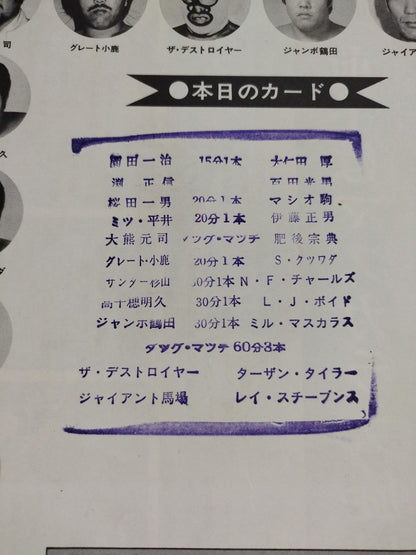 司
グレート小鹿
ザ・デストロイヤー
ジャンボ鶴田
ジャイア
久
ダ
●本日のカード●
園田一治 15分1本 大仁田 厚
渕 正信 百田光男
桜田一男 20分1本 マシオ駒
ミツ・平井 20分1本 伊藤正男
大熊元司 タッグ・マッチ 肥後宗典
グレート小鹿 20分1本 S・クツワダ
サンダー杉山 30分1本 N・F・チャールズ
高千穂明久 30分1本 L・J・ボイド
ジャンボ鶴田 30分1本 ミル・マスカラス
タッグ・マッチ 60分3本
ザ・デストロイヤー ターザン・タイラー
ジャイアント馬場 レイ・スチーブンス